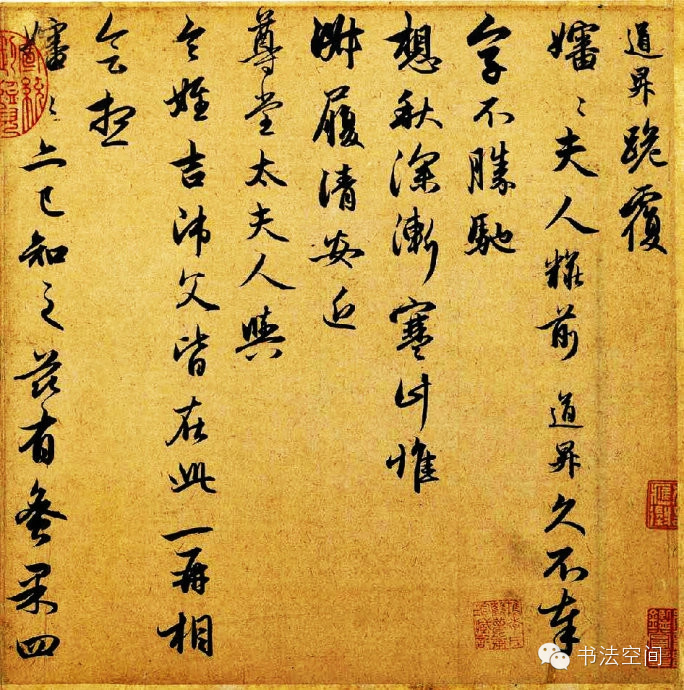 道昇跪覆
嬸〻夫人糚前道昇久不奉
字不勝馳
想秋深漸寒計惟
淑履清安近
尊堂太夫人與
令姪吉師父皆在此一再相
會想
嬸〻亦已知之茲有蔘果四
书法空间